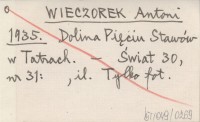 WIECZOREK Antoni
1935. Dolina Pięciu Stawów
w Tatrach. — Świat 30,
nr 31: , il. Tylko fot.